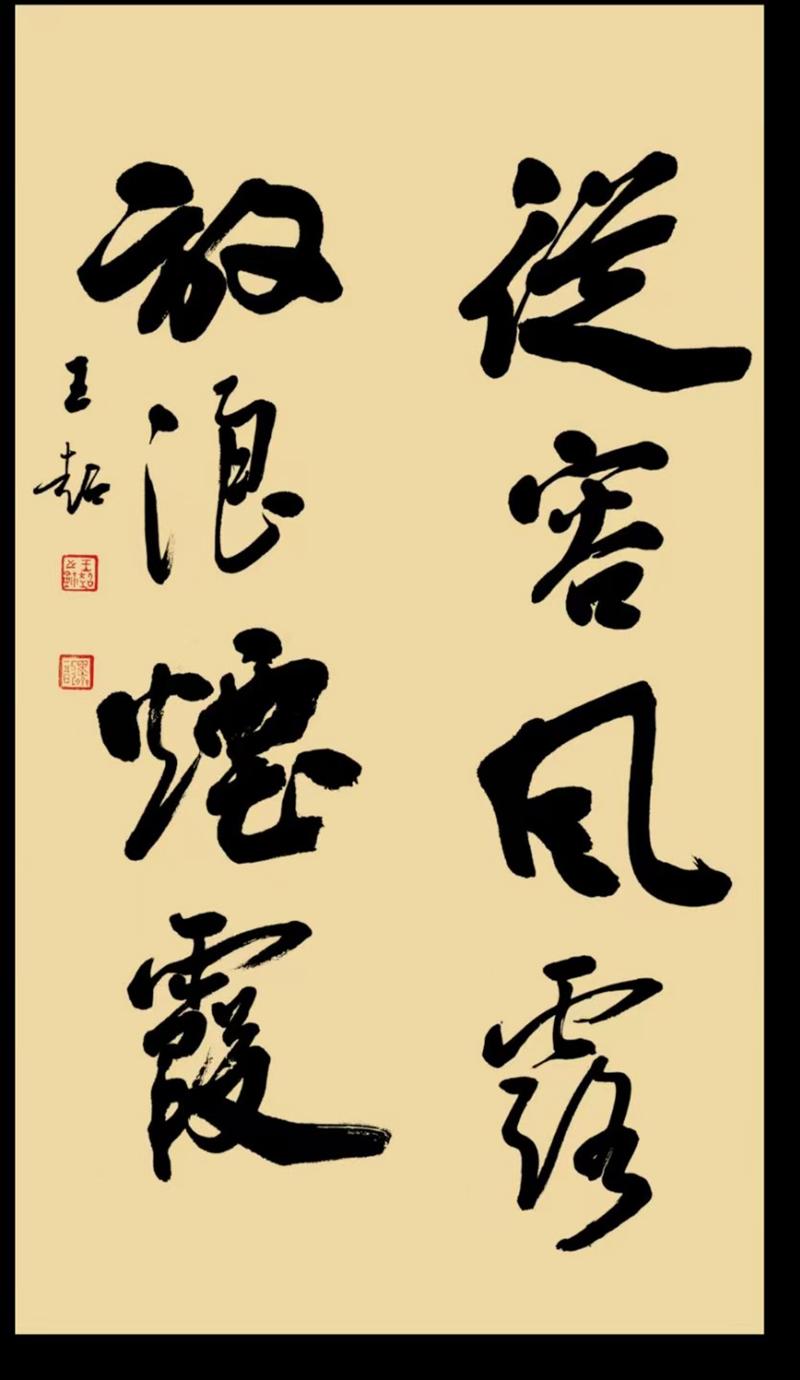 從容風露
放浪煙霞
王喆